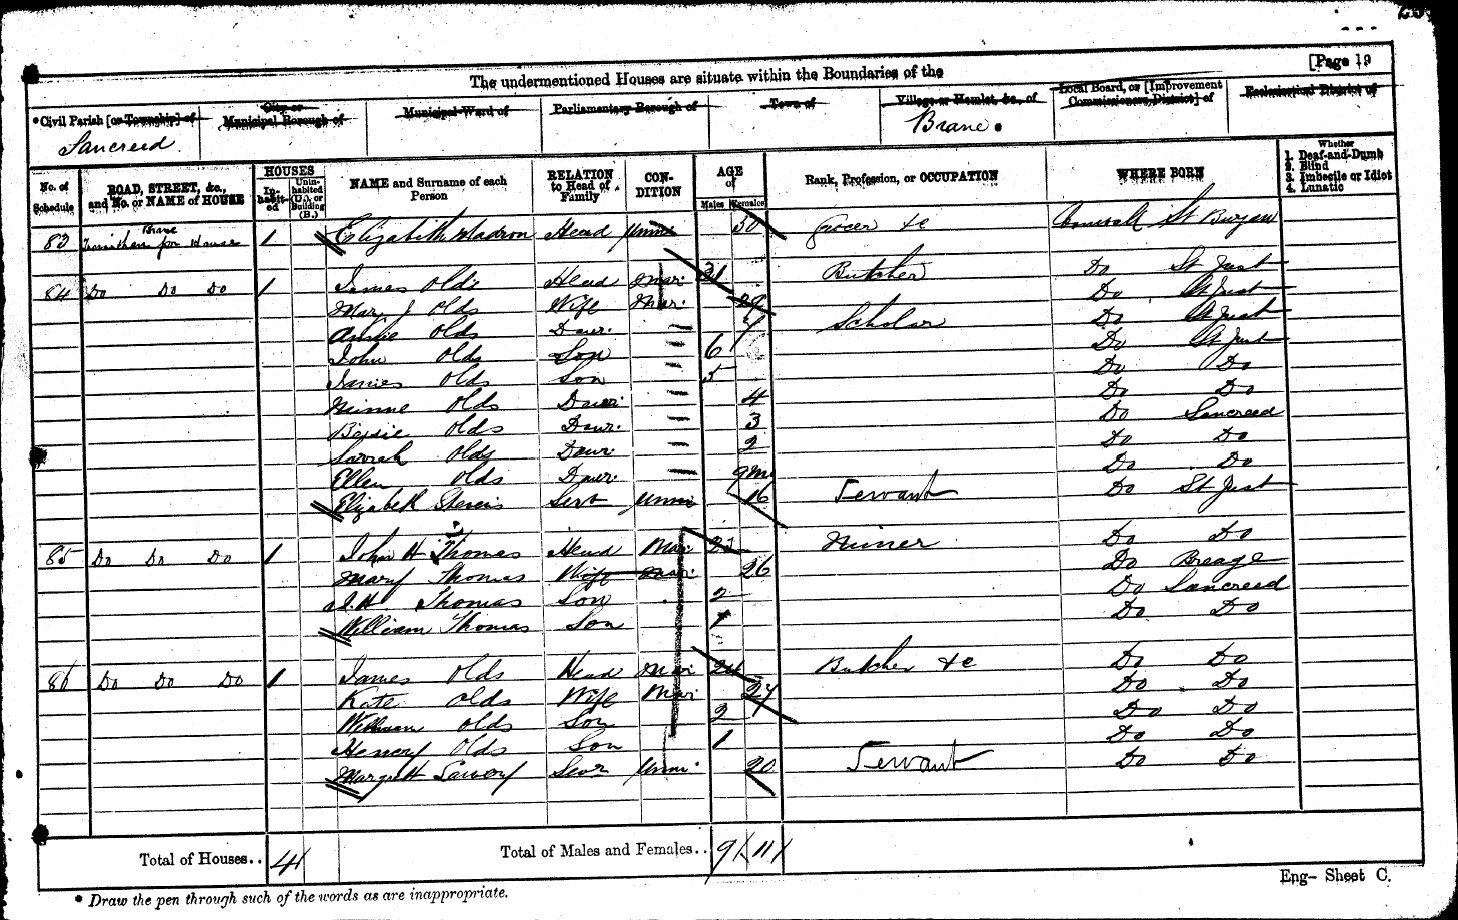 [Page 19
The undermentioned Houses are situate within the Boundaries of the
*Civil Parish [or Township] of
City or Municipal Borough of
Municipal Ward of
Parliamentary Borough of
Town of
Village or Hamlet, &c., of
Local Board, or [Improvement Commissioners District] of
Ecclesiastical District of
Sancreed
Brane.
No. of Schedule
ROAD, STREET, &c., and No. or NAME of HOUSE
HOUSES
In-habit-ed
Unin-habited (U.) or Building (B.)
NAME and Surname of each Person
RELATION to Head of Family
CON-DITION
AGE of
Males
Females
Rank, Profession, or OCCUPATION
WHERE BORN
Whether
1. Deaf-and-Dumb
2. Blind
3. Imbecile or Idiot
4. Lunatic
83 Brane House 1 Elizabeth Madron Head Unm 30 Grocer &c Cornwall St Buryan
84 Do Do Do 1 James Olds Head Mar. 31 Butcher Do St Just
Mary J Olds Wife Mar. 29 Do St Just
Annie Olds Daur. 7 Scholar Do St Just
John Olds Son 6 Do St Just
James Olds Son 5 Do Do
Minnie Olds Daur. 4 Do Do
Bessie Olds Daur. 3 Do Sancreed
Sarrah Olds Daur. 2 Do Do
Ellen Olds Daur. 9m Do Do
Elizabeth Stevens Serv Unm 16 Servant Do St Just
85 Do Do Do 1 John H Thomas Head Mar. 23 Miner Do Do
Mary Thomas Wife Mar. 26 Do Breage
J. H. Thomas Son 2 Do Sancreed
William Thomas Son 1 Do Do
86 Do Do Do 1 James Olds Head Mar 24 Butcher &c Do Do
Kate Olds Wife Mar. 27 Do Do
William Olds Son 2 Do Do
Henery Olds Son 1 Do Do
Margrett Serv Unm. 20 Servant Do Do
Total of Houses.. 4
Total of Males and Females.. 9 11
Eng- Sheet C.
* Draw the pen through such of the words as are inappropriate.